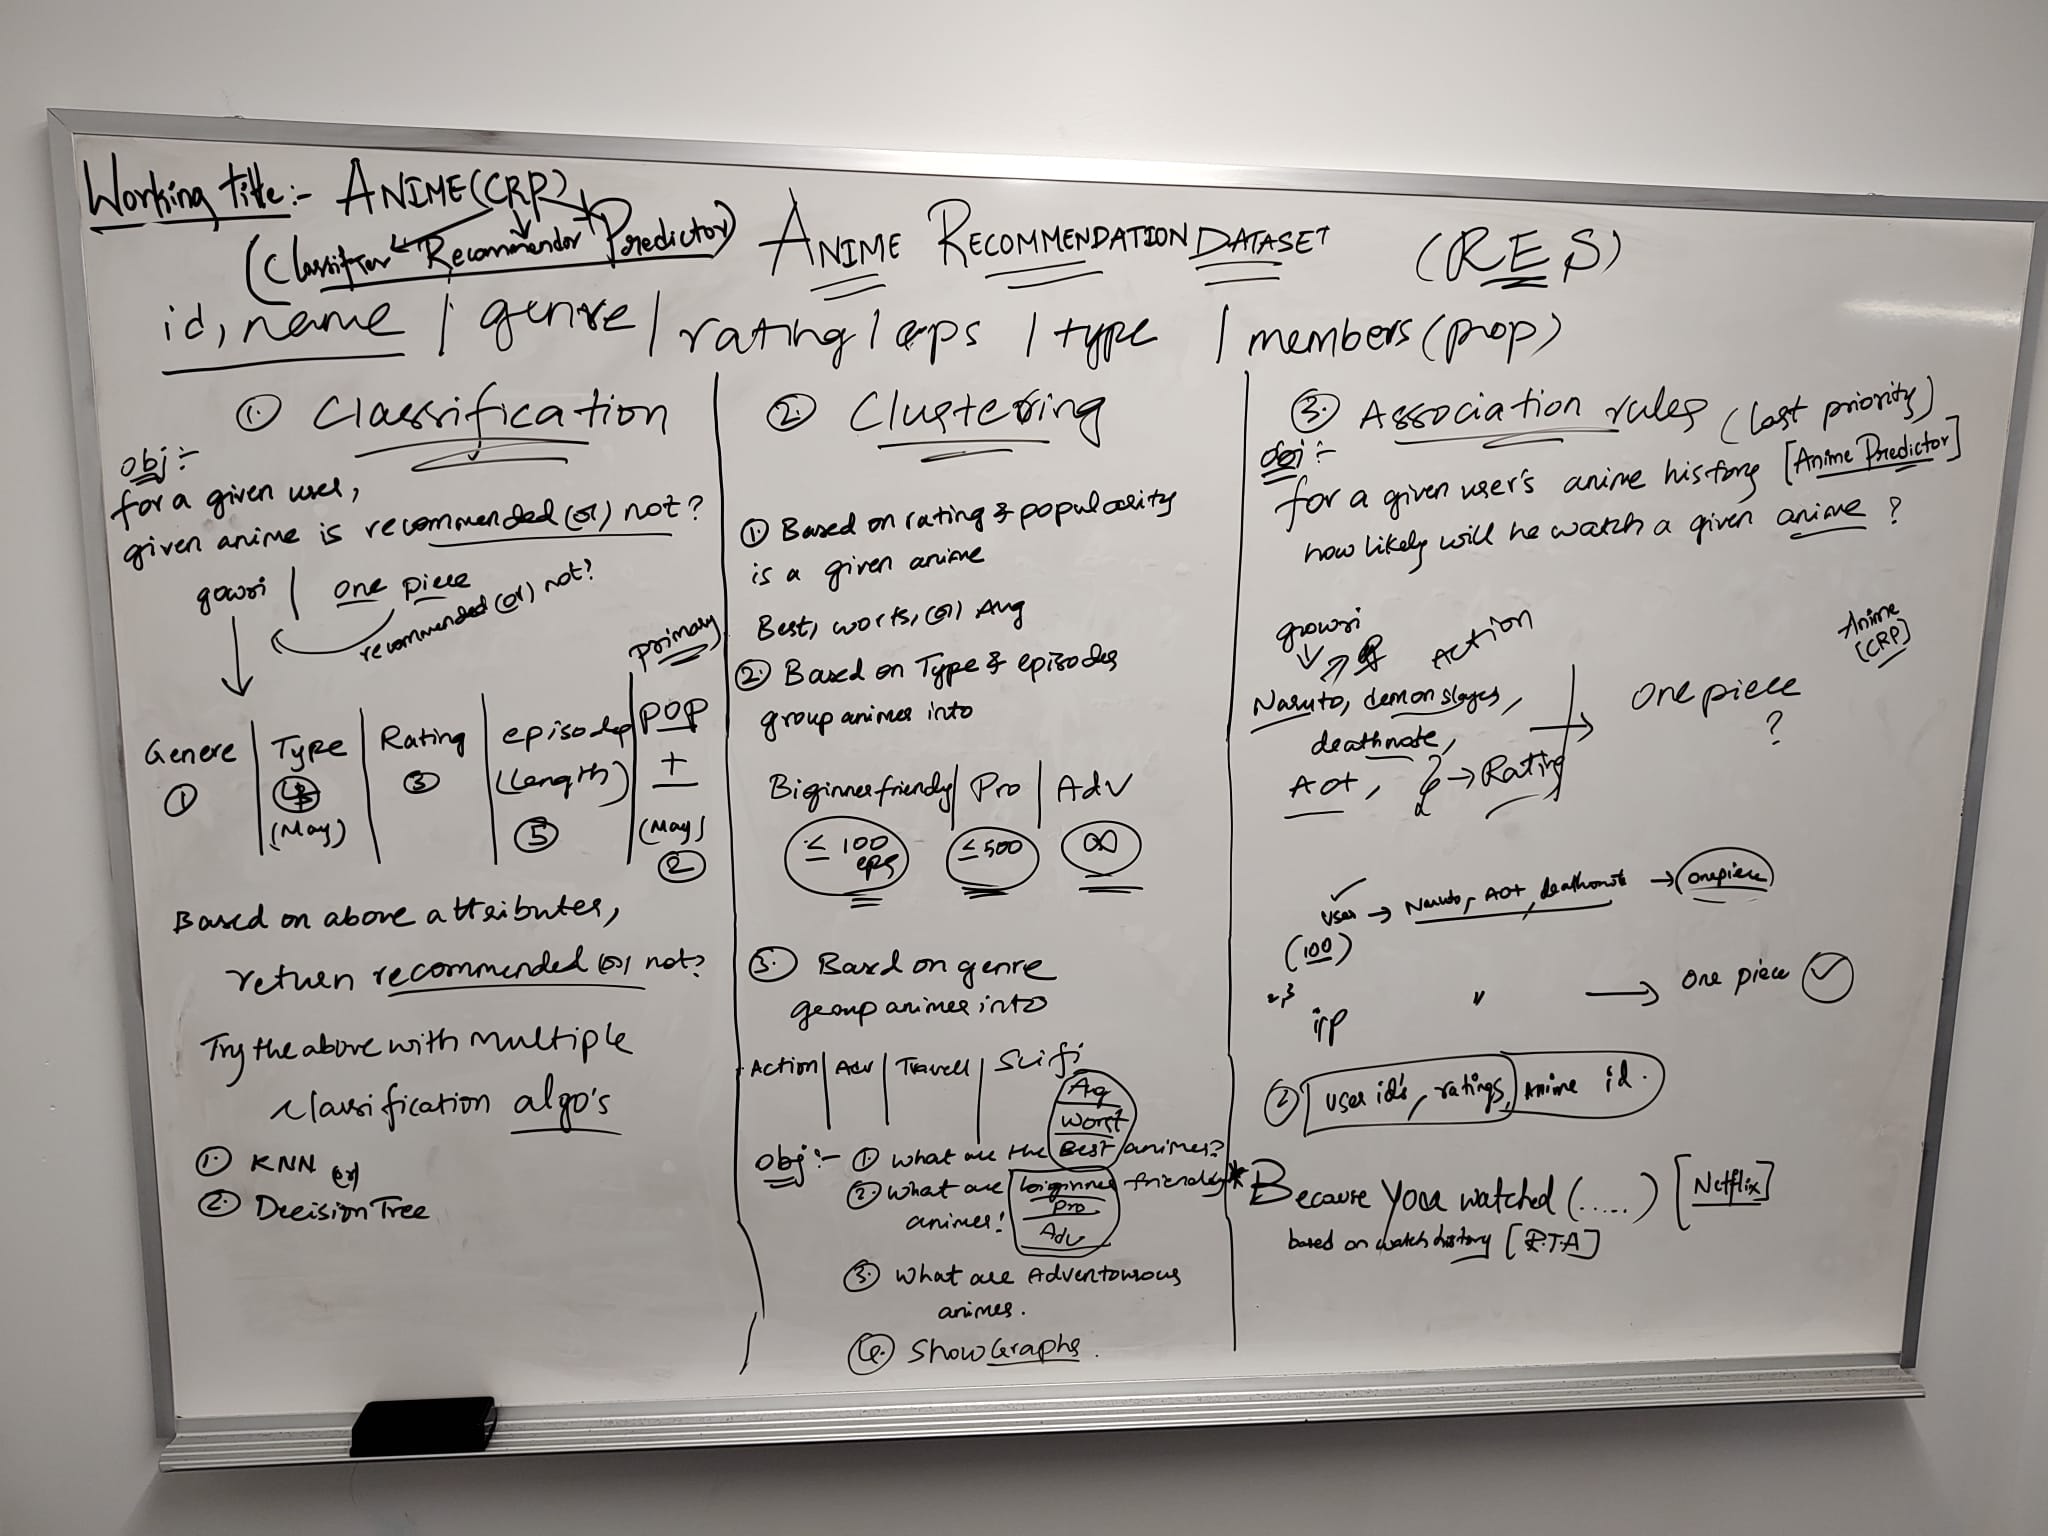 Working title:- ANIME(CRP)
(Classifier Recommendor Predictor)
ANIME RECOMMENDATION DATASET (RES)
id, name / genre / rating / eps / type / members (pop)
① Classification
obj:-
for a given user,
given anime is recommended (or) not?
gowri | one piece
recommended (or) not?
primary
Genere | Type | Rating | episodes (Length) | POP +
① (May) ③ ⑤ (May) ②
Based on above attributes,
return recommended (or) not?
Try the above with multiple
classification algo's
① KNN (or)
② Decision Tree
② Clustering
① Based on rating & popularity
is a given anime
Best, worts, (or) Avg
② Based on Type & episodes
group animes into
Biginner friendly | Pro | Adv
≤ 100 eps ≤ 500 ∞
③ Based on genre
group animes into
Action | Adv | Travell | Scifi
Avg
Worst
obj:- ① What are the Best animes?
② What are biginner friendly
animes! Pro
Adv
③ What are Adventourous
animes.
④ Show Graphs.
③ Association rules (last priority)
obj:-
for a given user's anime history [Anime Predictor]
how likely will he watch a given anime?
gowri
Action
Anime
[CRP]
Naruto, demon slayer,
deathnote,
AOT, → Rating
→ One piece
?
user → Naruto, AOT, deathnote → onepiece
(100)
" → One piece ✓
② User id's, ratings, Anime id.
* Because you watched (.....) [Netflix]
based on watch history [R.T.A]